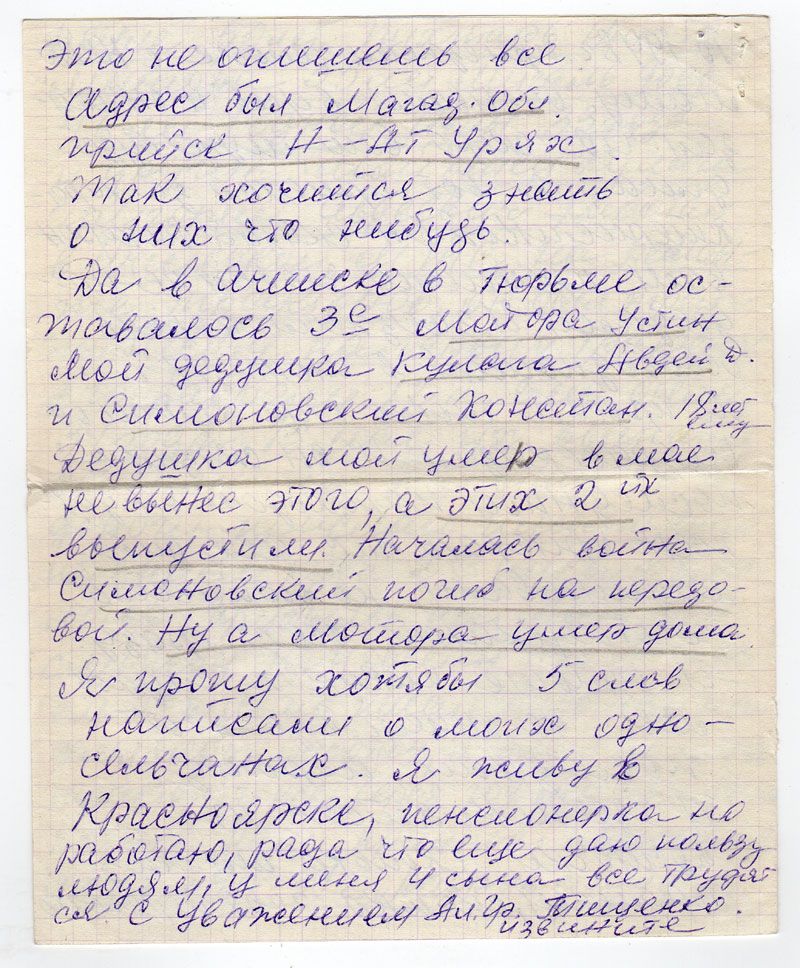 Это не опишешь все
Адрес был Магад. Обл.
прииск Н-Ат Урях.
Так хочится знать
о них что нибудь.
Да в Ачинске в тюрьме ос-
тавалось 3е Мотора Устин
мой дедушка Кулага Авдей Д.
и Симоновский Конатан. 18 лет
ему
Дедушка мой умер в мае
не вынес этого, а этих 2 их
выпустили. Началась война
Симоновский погиб на передо-
вой. Ну а Мотора умер дома.
Я прошу хотябы 5 слов
написали о моих одно-
сельчанах. Я живу в
Красноярске, пенсионерка но
работаю, рада что еще даю пользу
людям, у меня 4 сына все трудят
ся. С уважением Ал.Гр. Тищенко.
извините